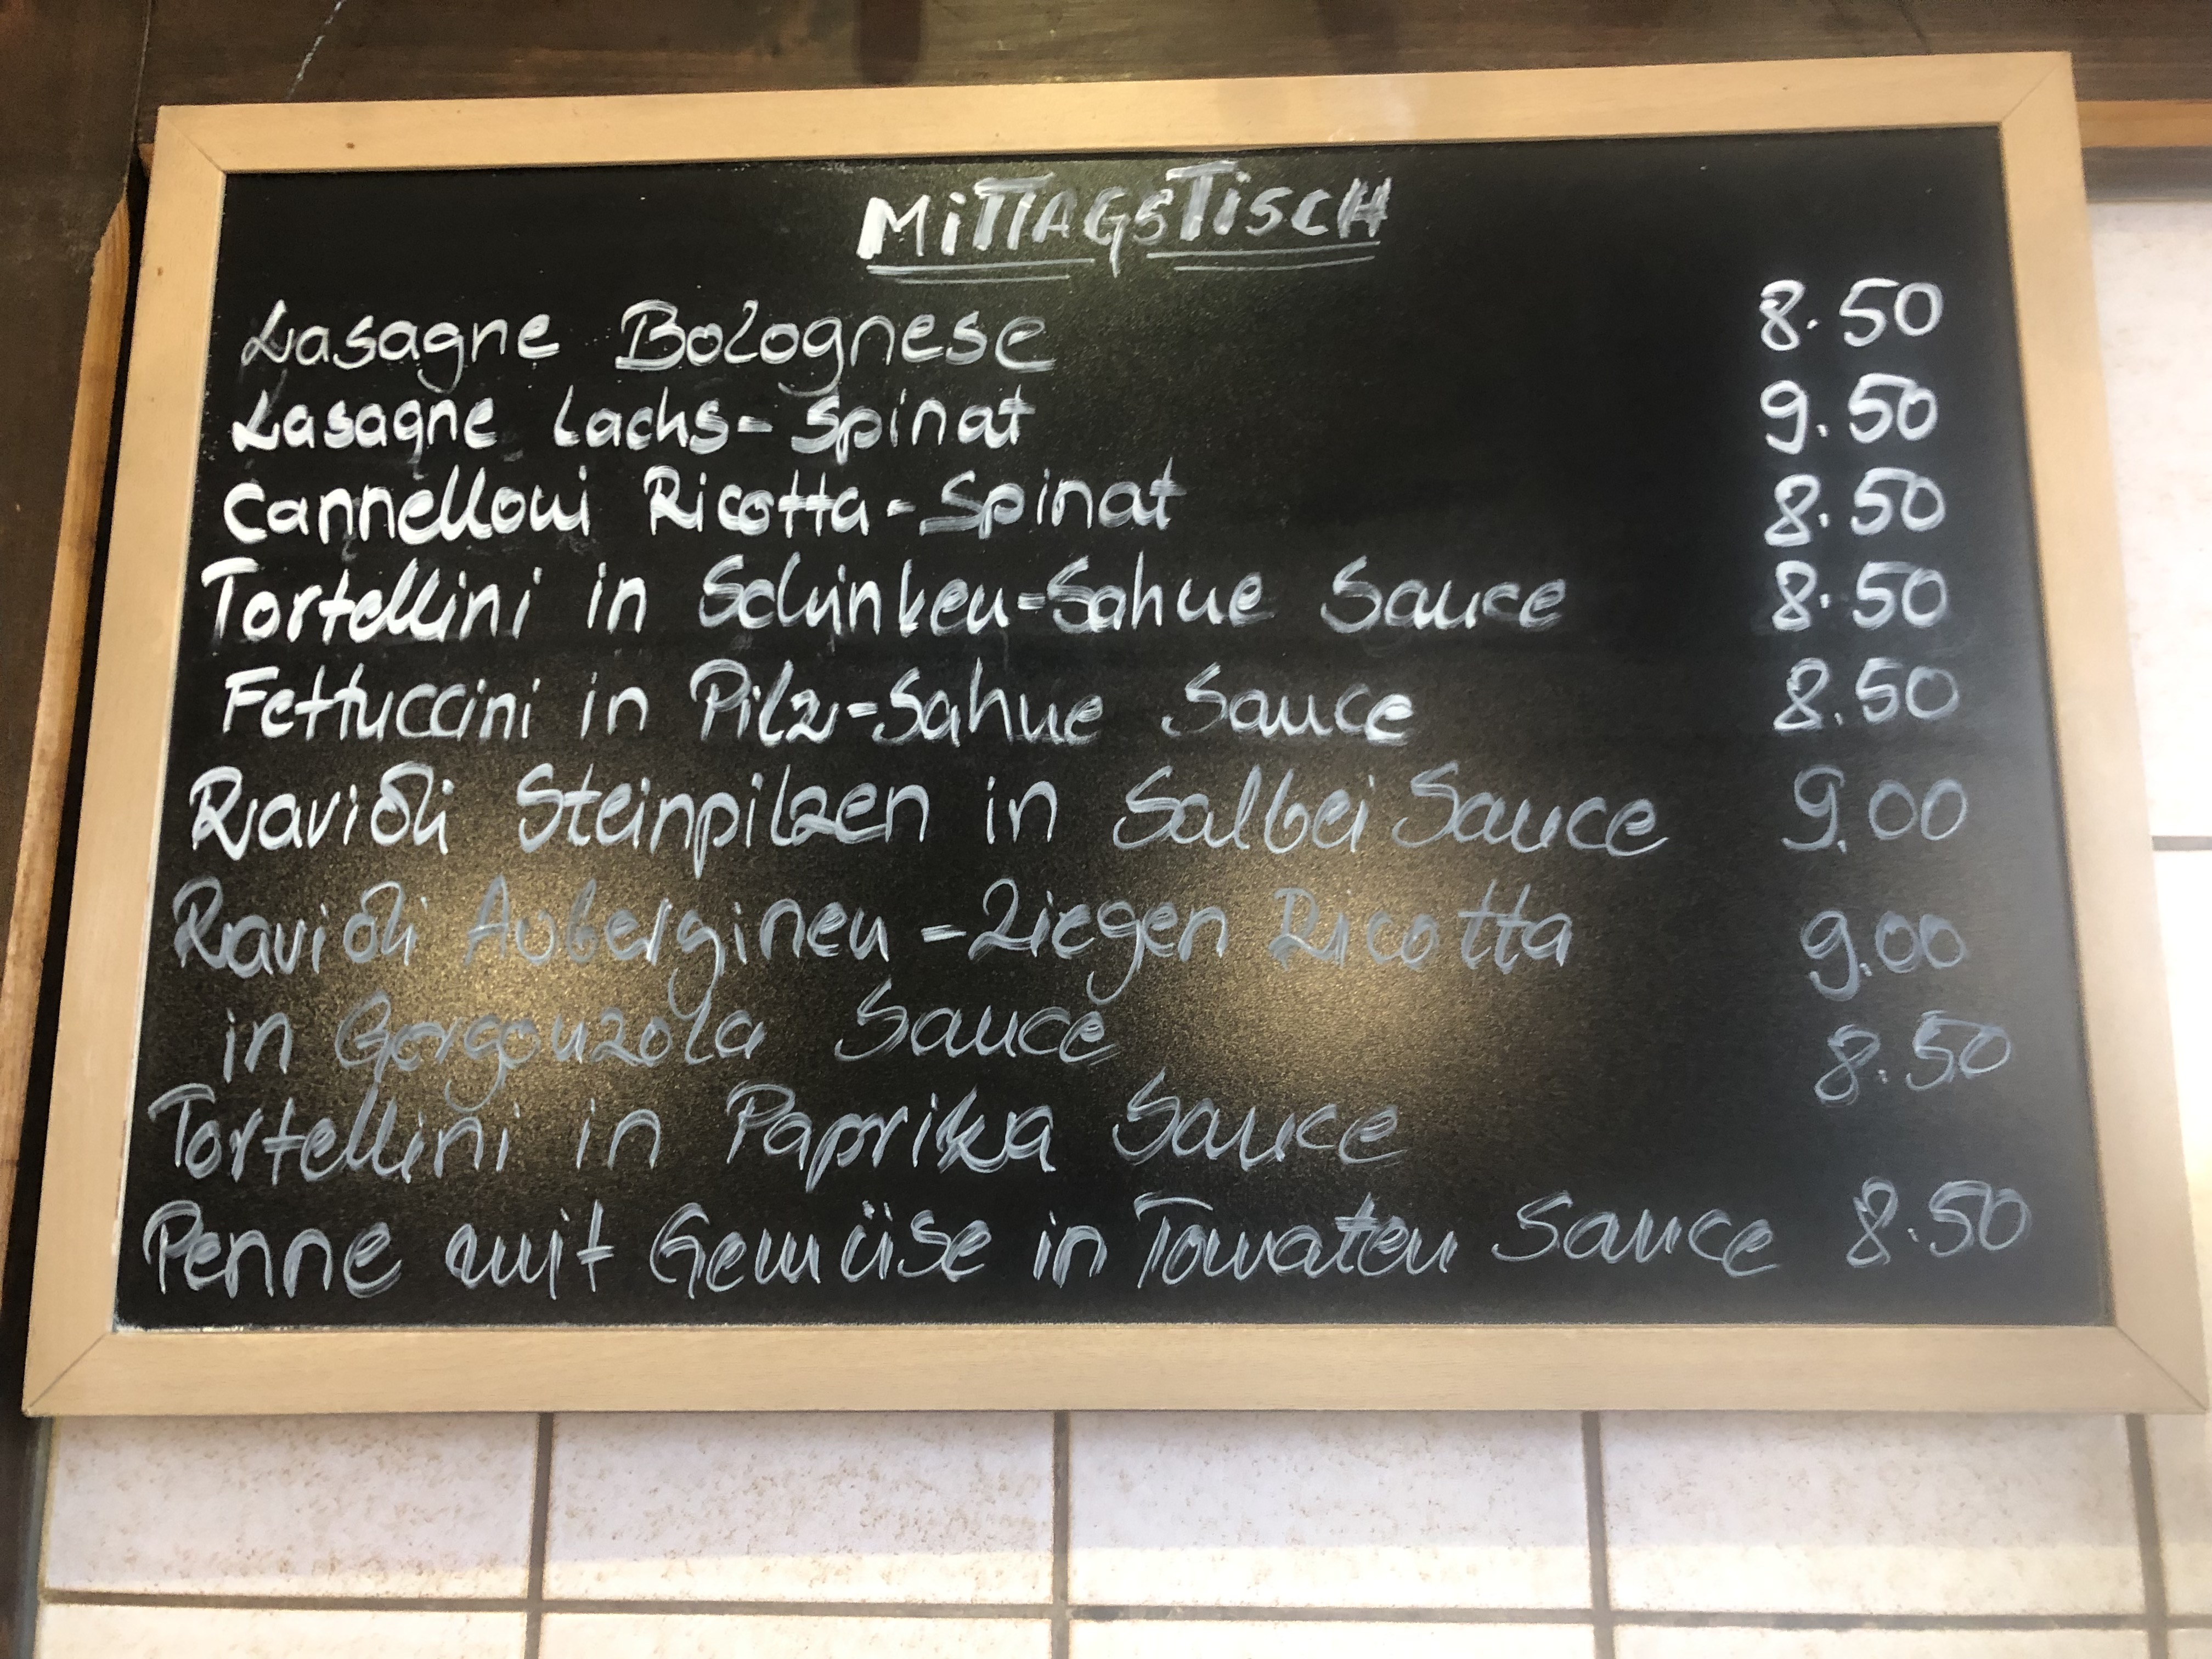 MITTAGSTISCH
Lasagne Bolognese 8.50
Lasagne Lachs-Spinat 9.50
Cannelloni Ricotta-Spinat 8.50
Tortellini in Schinken-Sahne Sauce 8.50
Fettuccini in Pilz-Sahne Sauce 8.50
Ravioli Steinpilzen in Salbei Sauce 9.00
Ravioli Auberginen-Ziegen Ricotta 9.00
in Gorgonzola Sauce
Tortellini in Paprika Sauce 8.50
Penne mit Gemüse in Tomaten Sauce 8.50